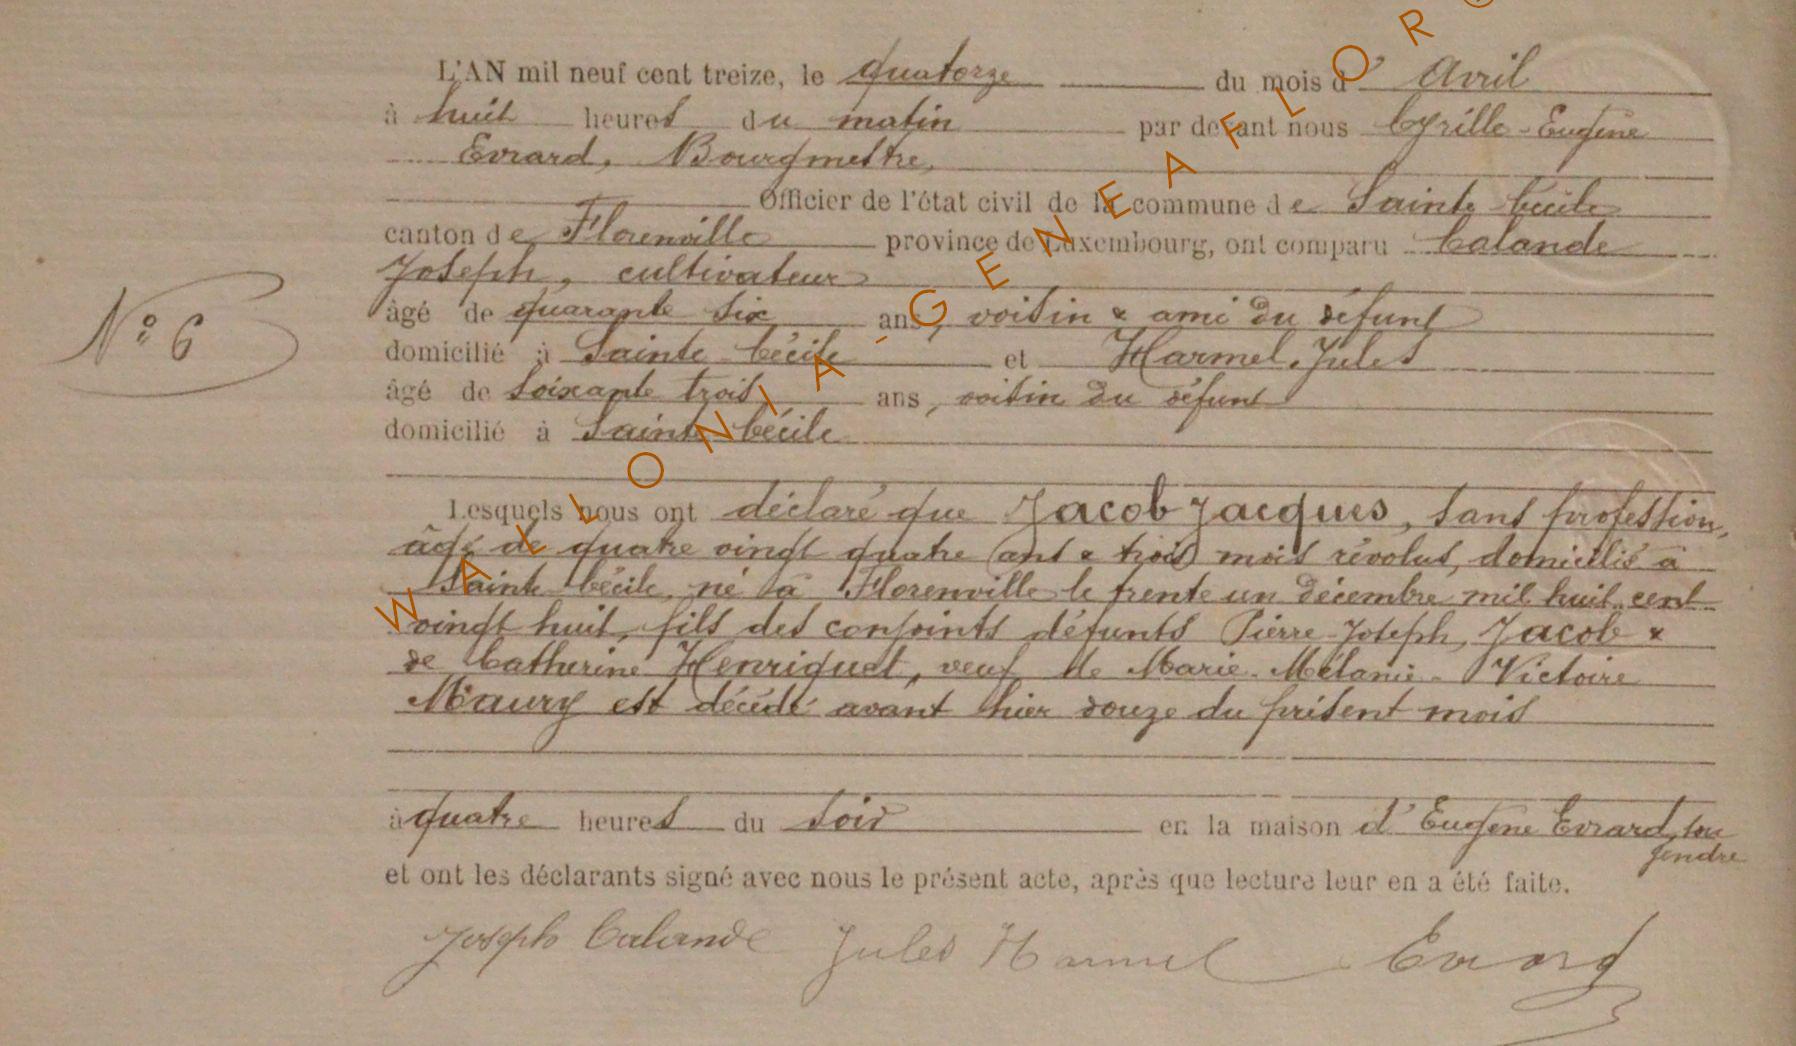 L'AN mil neuf cent treize, le quatorze du mois d' Avril
à huit heures du matin par devant nous Cyrille-Eugène
Evrard, Bourgmestre,
Officier de l'état civil de la commune de Sainte Cécile
canton de Florenville province de Luxembourg, ont comparu Calande
Joseph, cultivateur
âgé de quarante six ans, voisin & ami du défunt
domicilié à Sainte Cécile et Harmel, Jules
âgé de soixante trois ans, voisin du défunt
domicilié à Sainte Cécile
N° 6
Lesquels nous ont déclaré que Jacob Jacques, sans profession,
âgé de quatre vingt quatre ans & trois mois révolus, domicilié à
Sainte Cécile, né à Florenville le trente un décembre mil huit cent
vingt huit, fils des conjoints défunts Pierre-Joseph, Jacob &
de Catherine Henriquet, veuf de Marie-Mélanie-Victoire
Maury est décédé avant hier douze du présent mois
à quatre heures du soir en la maison d'Eugène Evrard, son
gendre
et ont les déclarants signé avec nous le présent acte, après que lecture leur en a été faite.
Joseph Calande Jules Harmel Evrard
WALLONIA-GENEAFLOR©